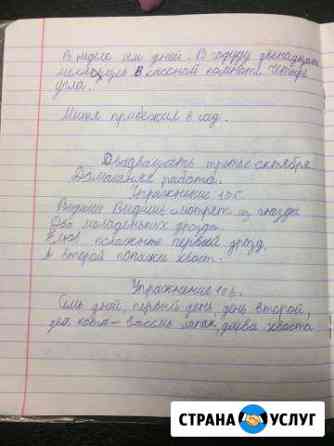 В неделе семь дней. В году двенадцать
месяцев. В классной комнате четыре
угла.
Миша прибежал в сад.
Двадцать третье октября
Домашняя работа.
Упражнение 105.
Видишь Видишь смотрят из гнезда
Два молоденьких дрозда
Клюв покажет первый дрозд.
А второй покажет хвост.
Упражнение 106.
Семь дней, первый день, день второй,
два кота - восемь лапок, два хвоста
СТРАНА УСЛУГ